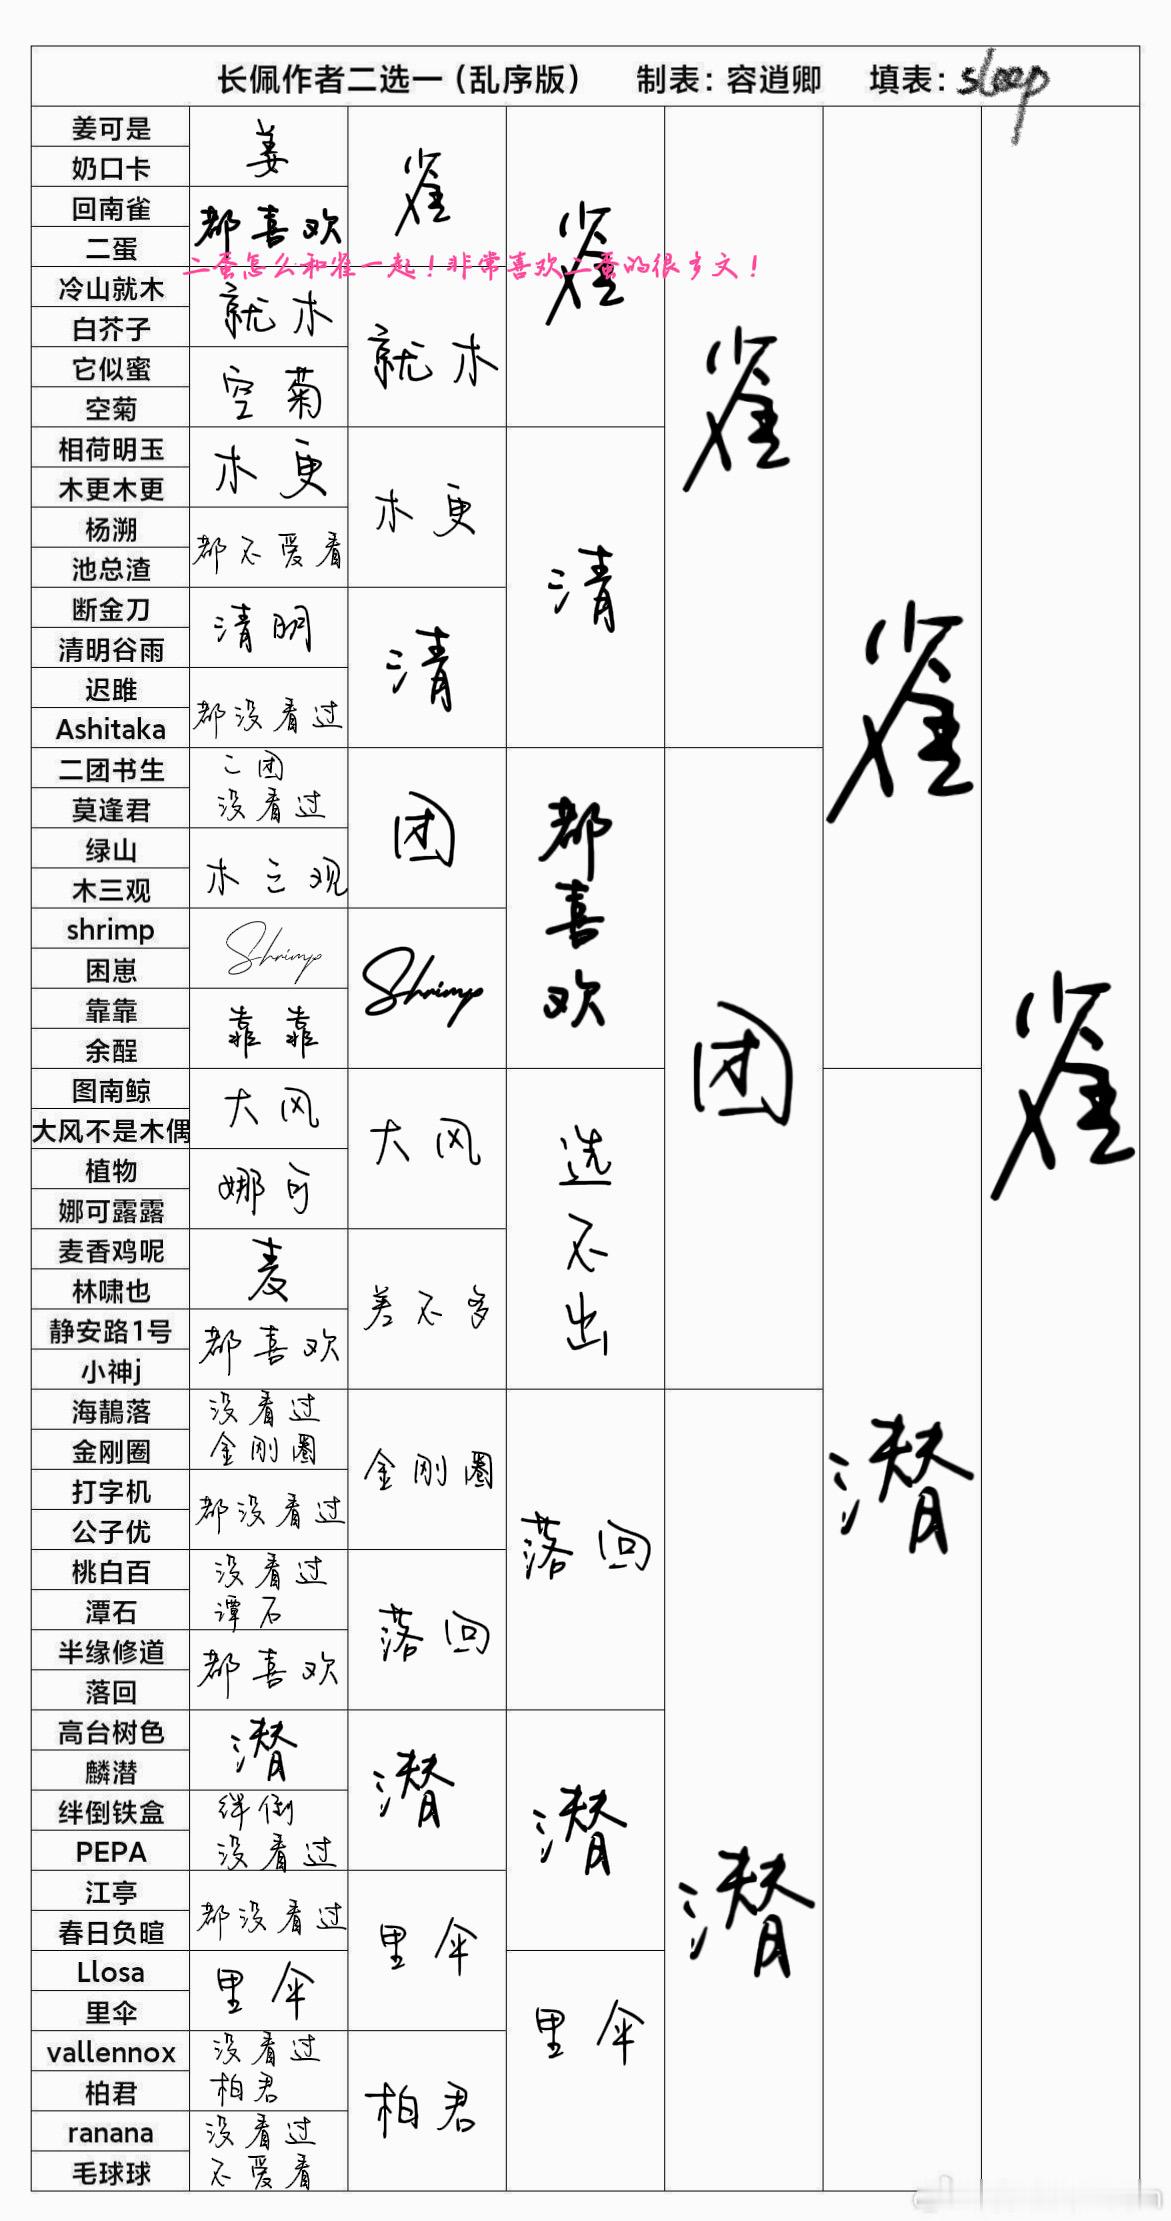 长佩作者二选一（乱序版） 制表：容逍卿 填表：sleep
姜可是
奶口卡
姜
回南雀
二蛋
都喜欢
二蛋怎么和雀一起！非常喜欢二蛋的很多文！
冷山就木
白芥子
就木
它似蜜
空菊
空菊
相荷明玉
木更木更
木更
杨溯
池总渣
都不爱看
断金刀
清明谷雨
清明
迟雎
Ashitaka
都没看过
二团书生
莫逢君
二团
没看过
绿山
木三观
木三观
shrimp
困崽
Shrimp
靠靠
余酲
靠靠
图南鲸
大风不是木偶
大风
植物
娜可露露
娜可
麦香鸡呢
林啸也
麦
静安路1号
小神j
都喜欢
海鶄落
金刚圈
没看过
金刚圈
打字机
公子优
都没看过
桃白百
潭石
没看过
谭石
半缘修道
落回
都喜欢
高台树色
麟潜
潜
绊倒铁盒
PEPA
绊倒
没看过
江亭
春日负暄
都没看过
Llosa
里伞
里伞
vallennox
柏君
没看过
柏君
ranana
毛球球
没看过
不爱看
雀
就木
木更
清
团
Shrimp
大风
差不多
金刚圈
落回
潜
里伞
柏君
雀
清
都喜欢
选不出
落回
潜
里伞
雀
团
潜
雀
潜
雀